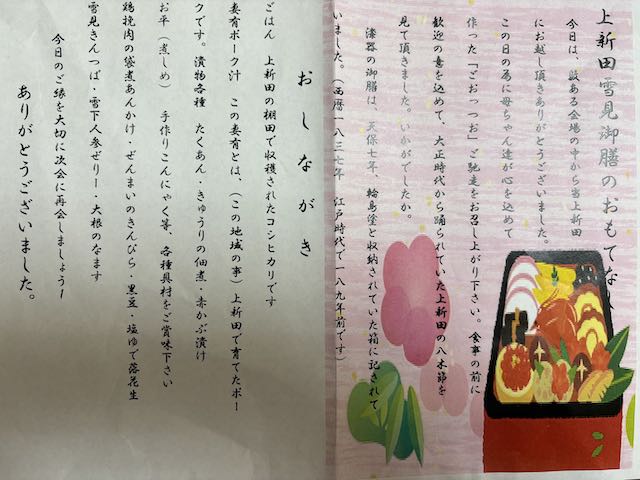 上新田雪見御膳のおもてな
今日は、数ある会場の中から当上新田
にお越し頂きありがとうございました。
この日の為に母ちゃん達が心を込めて
作った「どおっつお」ご馳走をお召し上がり下さい。食事の前に
歓迎の意を込めて、大正時代から踊られていた上新田の八木節を
見て頂きました。いかがでしたか。
漆器の御膳は、天保七年、輪島塗と収納されていた箱に記されて
いました。(西暦一八三七年 江戸時代で一八九年前です)
おしながき
ごはん 上新田の棚田で収穫されたコシヒカリです
妻有ポーク汁 この妻有とは、(この地域の事)上新田で育てたポー
クです。漬物各種 たくあん・きゅうりの佃煮・赤かぶ漬け
お平(煮しめ) 手作りこんにゃく等、各種具材をご賞味下さい
鶏挽肉の袋煮あんかけ・ぜんまいのきんぴら・黒豆・塩ゆで落花生
雪見きんつば・雪下人参ぜりー・大根のなます
今日のご縁を大切に次会に再会しましょう!
ありがとうございました。